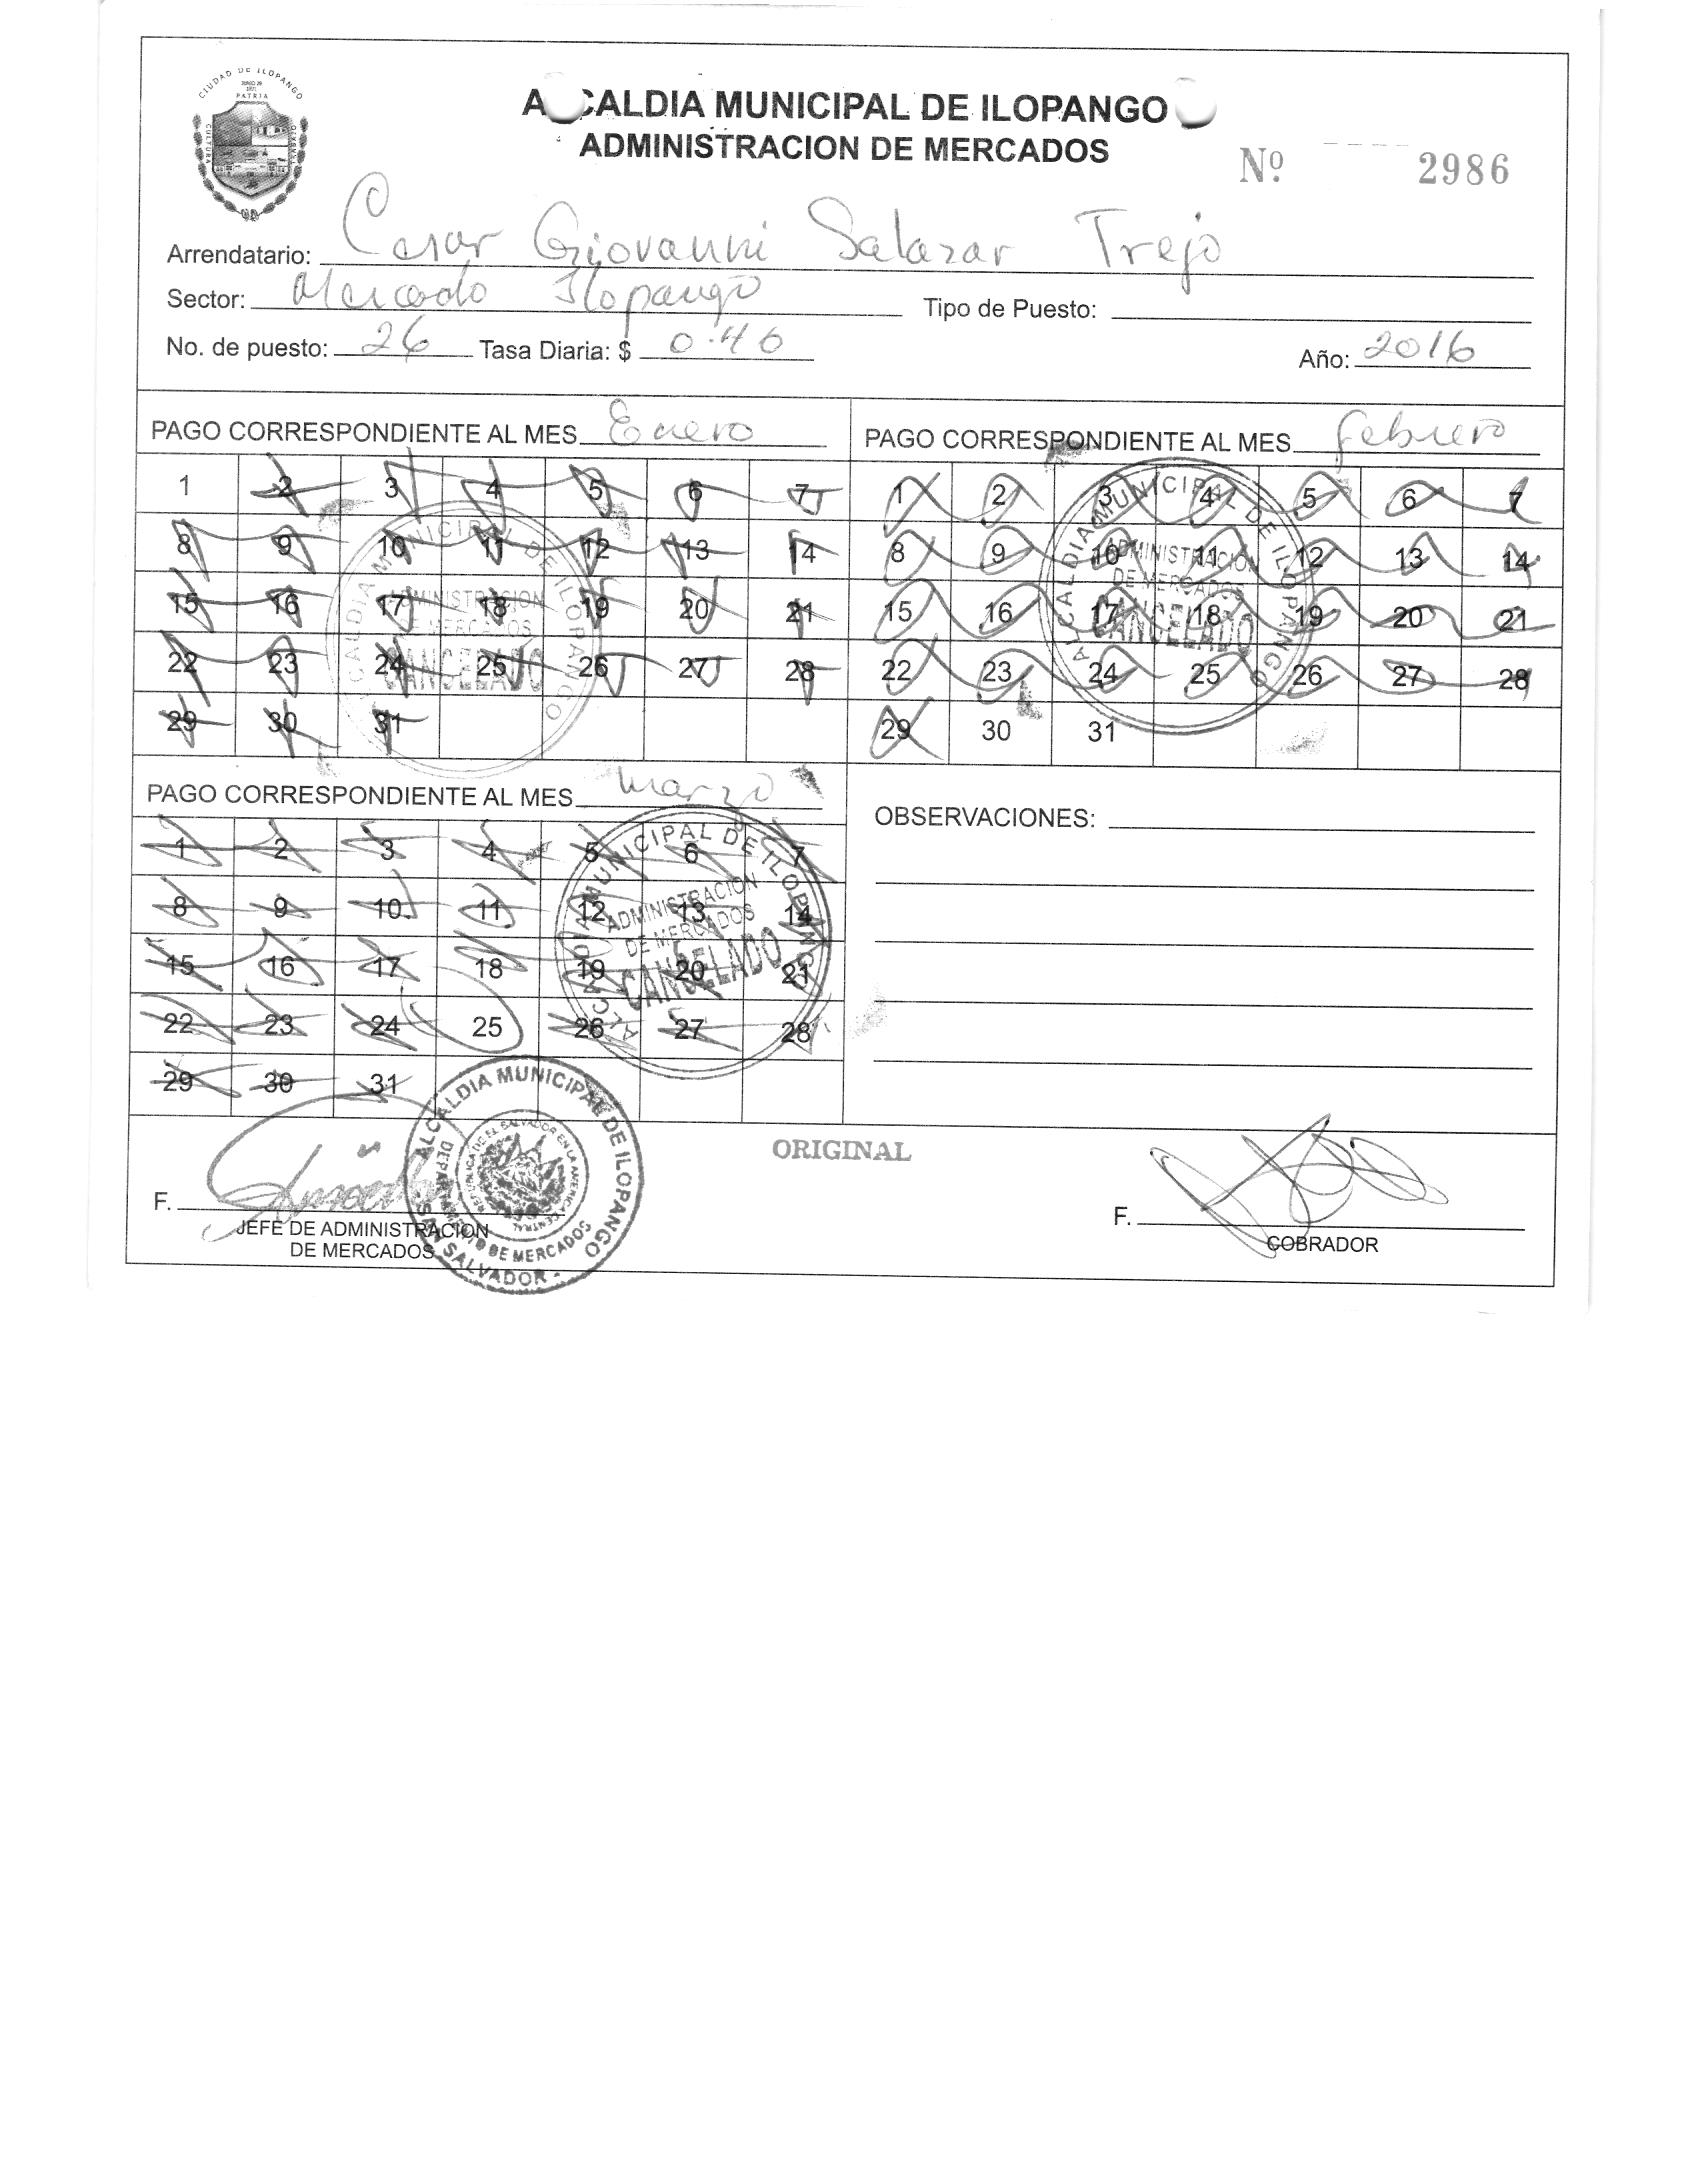 CIUDAD DE ILOPANGO
PATRIA
CULTURA
ALCALDIA MUNICIPAL DE ILOPANGO
ADMINISTRACION DE MERCADOS
Nº 2986
Arrendatario: Cesar Giovanni Salazar Trejo
Sector: Mercado Ilopango Tipo de Puesto:
No. de puesto: 26 Tasa Diaria: $ 0.46 Año: 2016
PAGO CORRESPONDIENTE AL MES Enero
1 2 3 4 5 6 7
8 9 10 11 12 13 14
15 16 17 18 19 20 21
22 23 24 25 26 27 28
29 30 31
ALCALDIA MUNICIPAL DE ILOPANGO
ADMINISTRACION
DE MERCADOS
CANCELADO
PAGO CORRESPONDIENTE AL MES febrero
1 2 3 4 5 6 7
8 9 10 11 12 13 14
15 16 17 18 19 20 21
22 23 24 25 26 27 28
29 30 31
ALCALDIA MUNICIPAL DE ILOPANGO
ADMINISTRACION
DE MERCADOS
CANCELADO
PAGO CORRESPONDIENTE AL MES marzo
1 2 3 4 5 6 7
8 9 10 11 12 13 14
15 16 17 18 19 20 21
22 23 24 25 26 27 28
29 30 31
ALCALDIA MUNICIPAL DE ILOPANGO
ADMINISTRACION
DE MERCADOS
CANCELADO
OBSERVACIONES:
ORIGINAL
F.
JEFE DE ADMINISTRACION
DE MERCADOS
ALCALDIA MUNICIPAL DE ILOPANGO
DEPARTAMENTO DE MERCADOS
REPUBLICA DE EL SALVADOR EN LA AMERICA CENTRAL
- SAN SALVADOR -
F.
COBRADOR